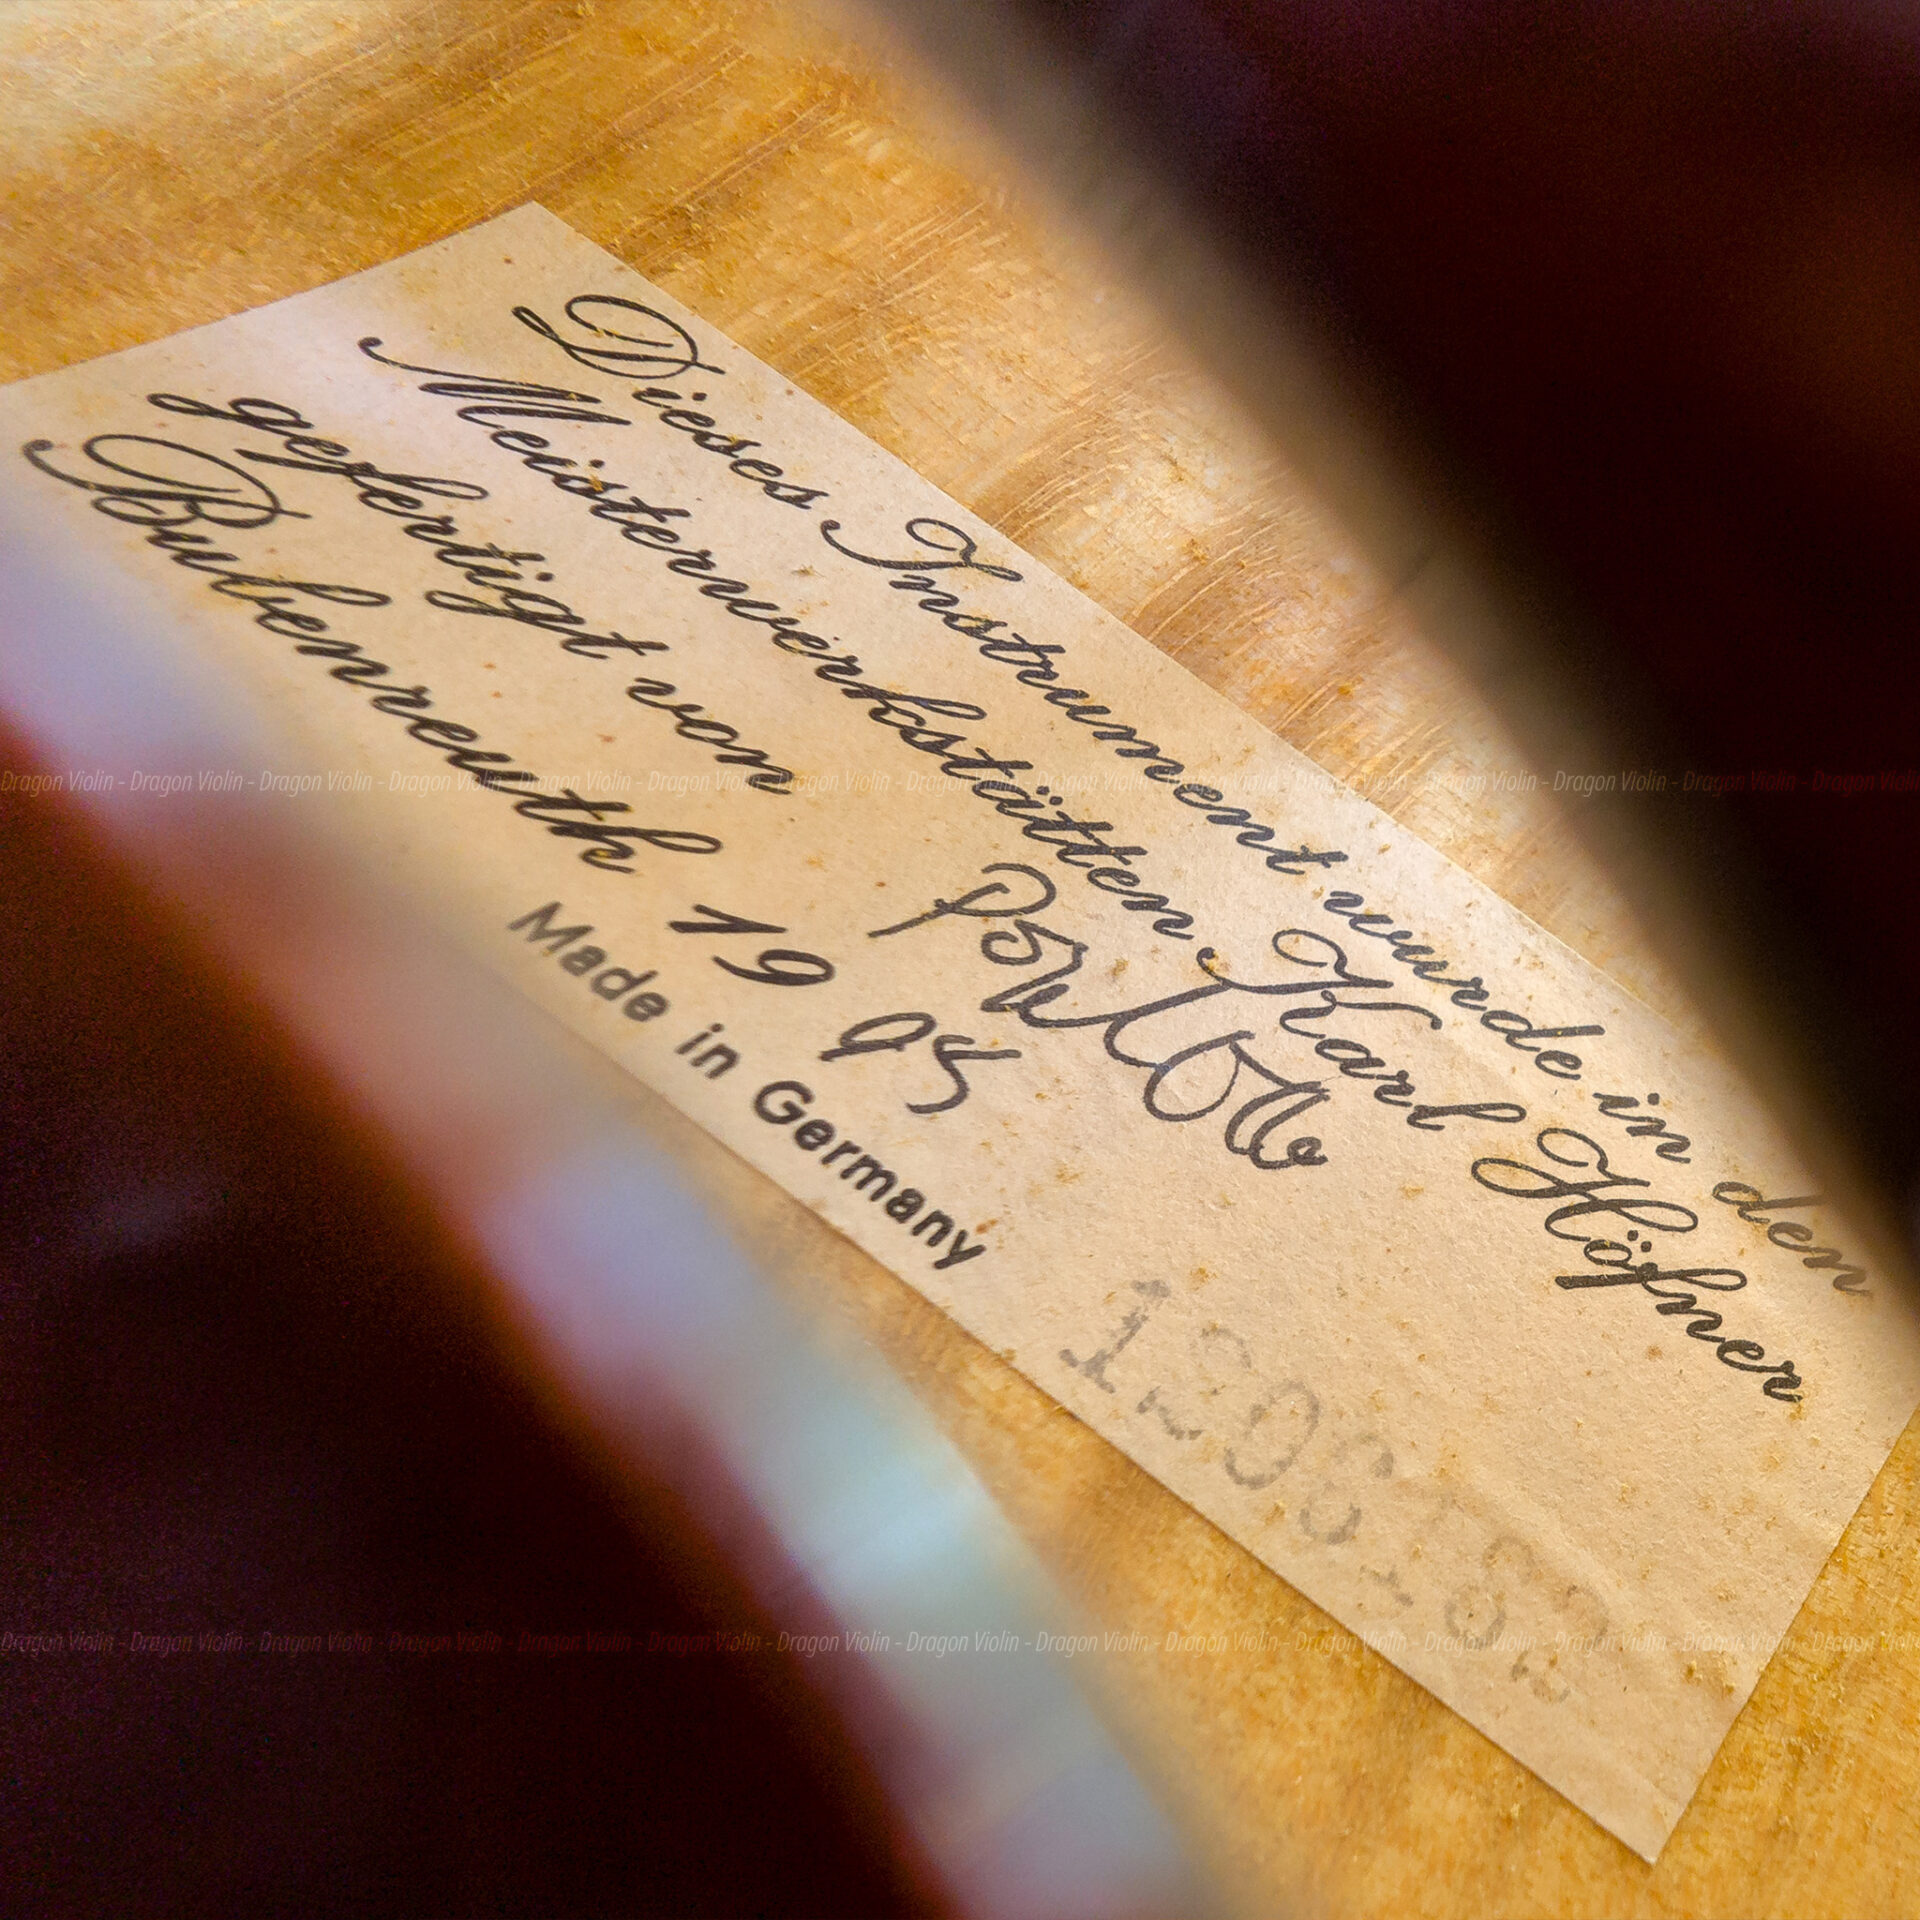 Dieses Instrument wurde in den
Meisterwerkstätten Karl Höfner
gefertigt von
Bubenreuth 19 95
Made in Germany
Dragon Violin - Dragon Violin - Dragon Violin - Dragon Violin - Dragon Violin - Dragon Violin - Dragon Violin - Dragon Violin - Dragon Violin - Dragon Violin - Dragon Violin - Dragon Violin - Dragon Violin - Dragon Violin - Dragon Violin
Dragon Violin - Dragon Violin - Dragon Violin - Dragon Violin - Dragon Violin - Dragon Violin - Dragon Violin - Dragon Violin - Dragon Violin - Dragon Violin - Dragon Violin - Dragon Violin - Dragon Violin - Dragon Violin - Dragon Violin